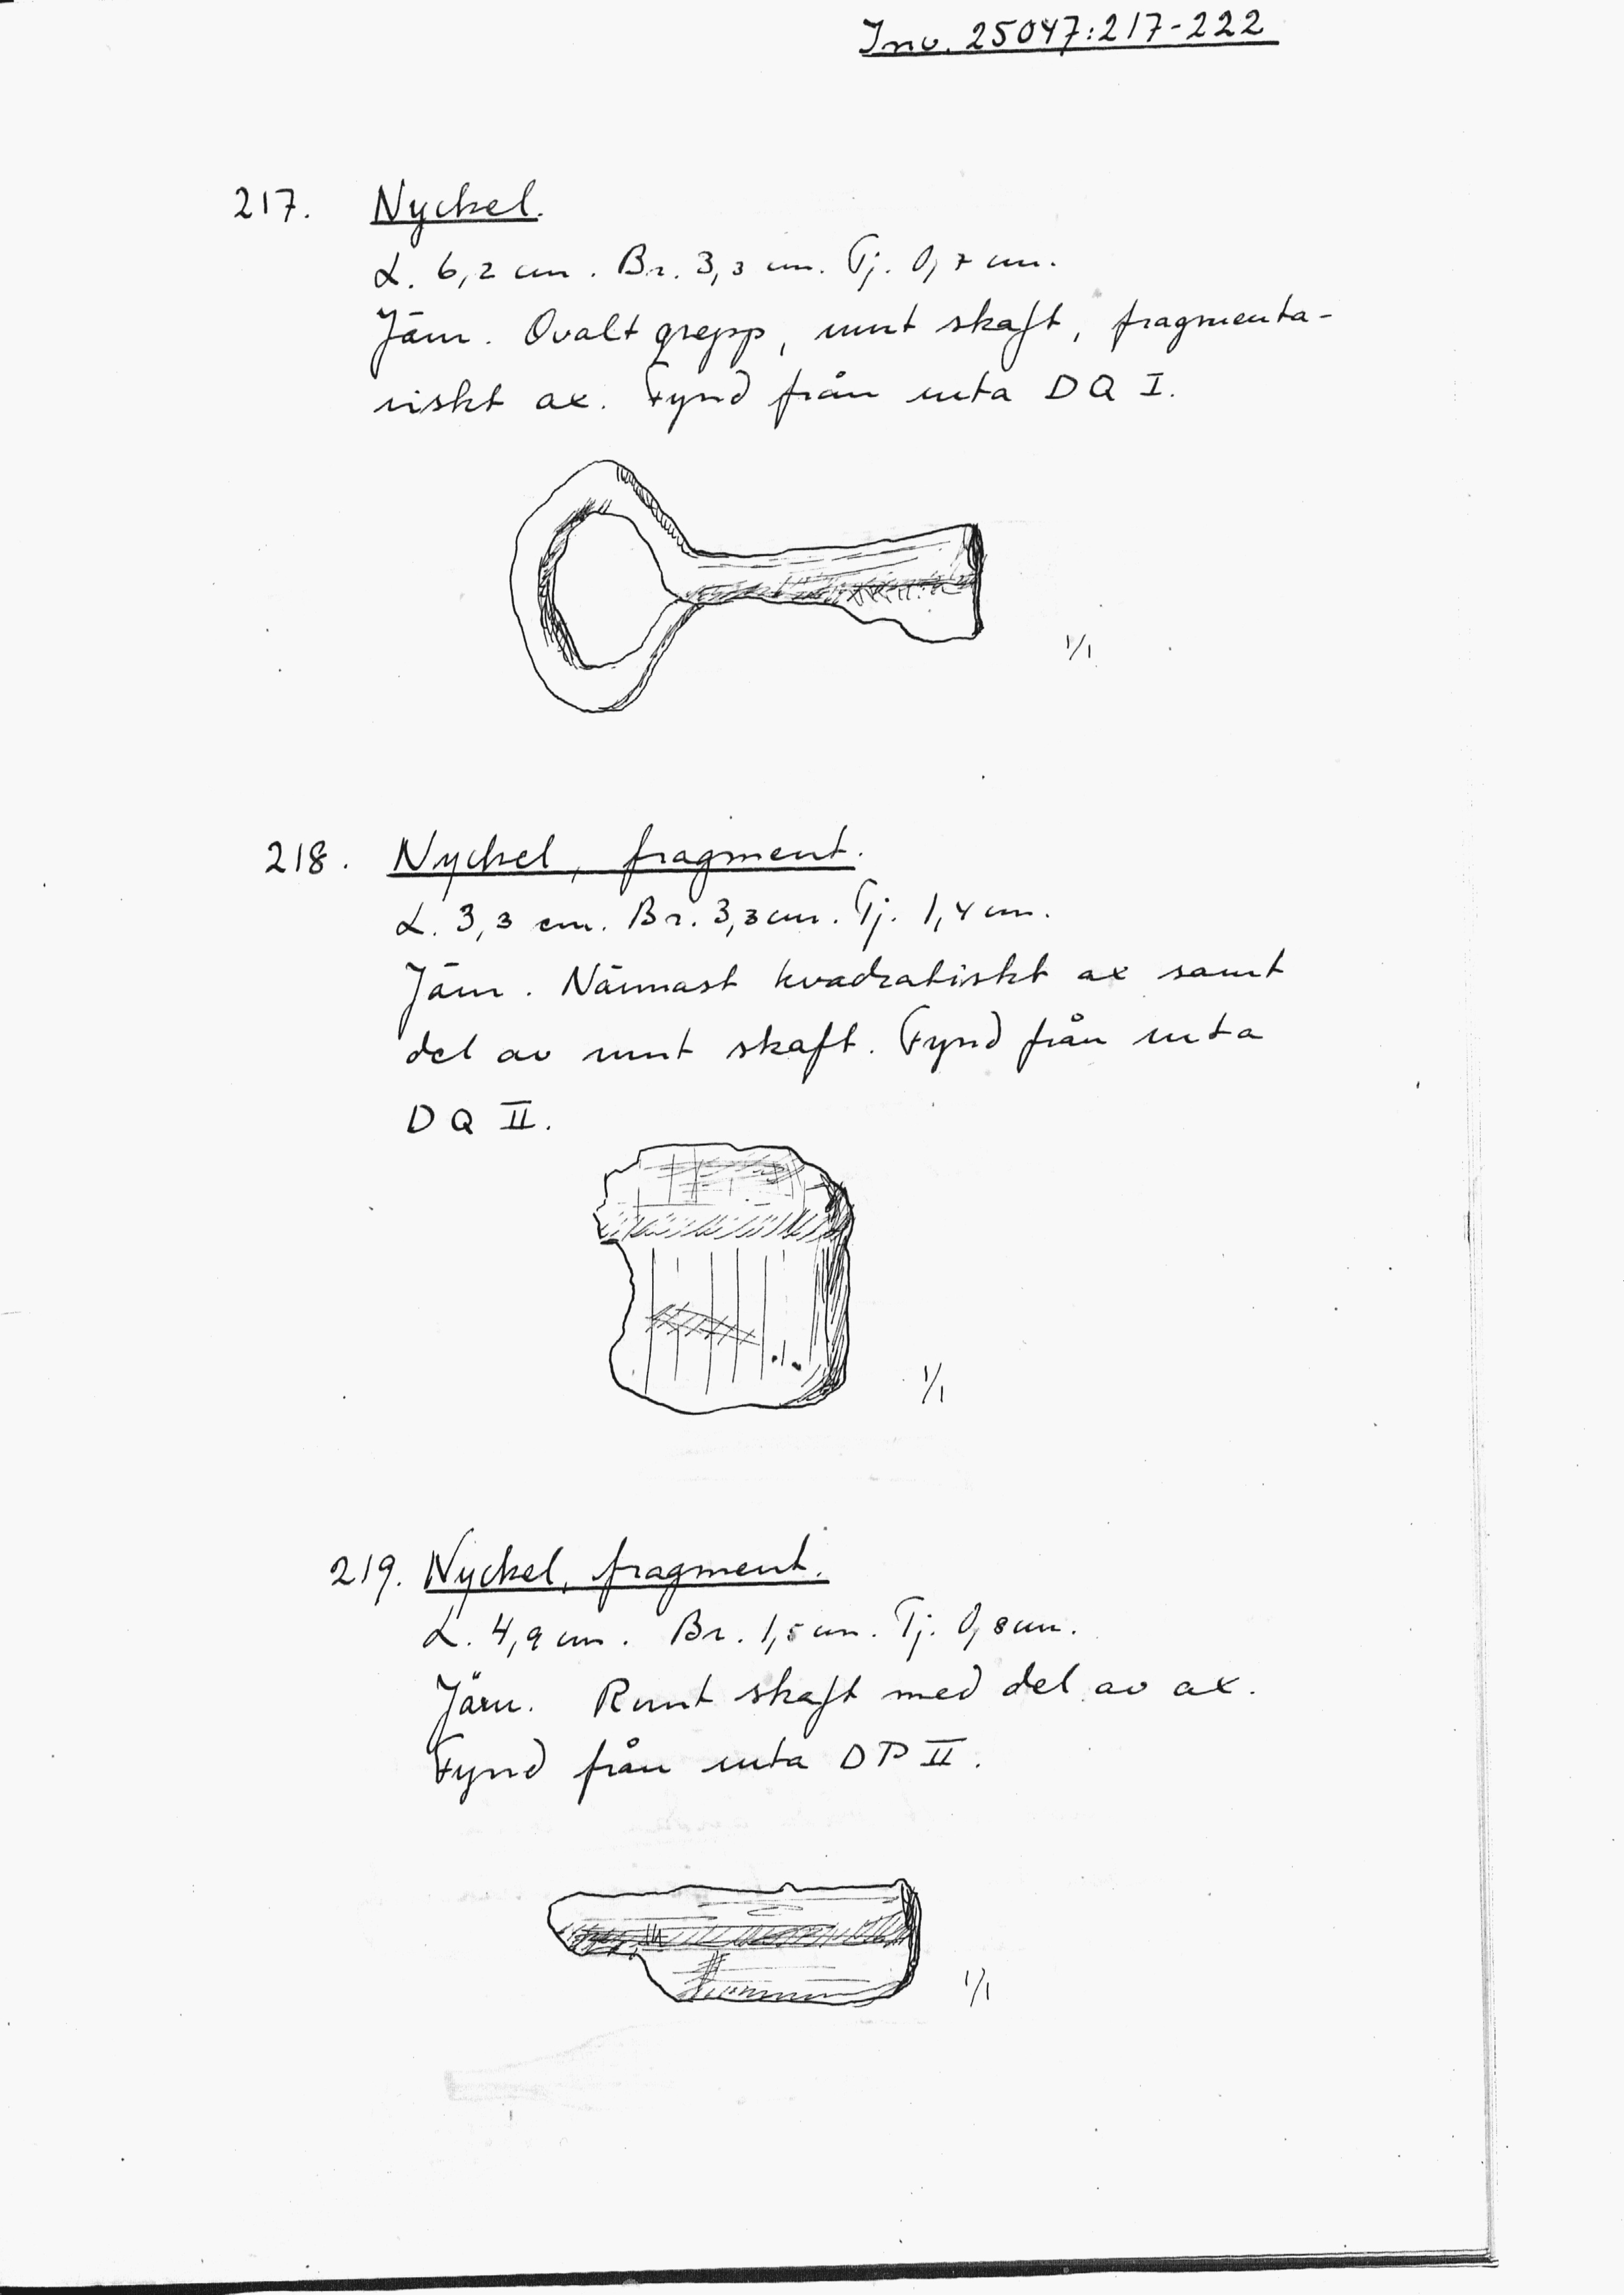 Inv. 25047:217-222
217. Nyckel.
L. 6,2 cm. Br. 3,3 cm. Tj. 0,7 cm.
Järn. Ovalt grepp, runt skaft, fragmenta-
riskt ax. Fynd från ruta DQ I.
1/1
218. Nyckel, fragment.
L. 3,3 cm. Br. 3,3 cm. Tj. 1,4 cm.
Järn. Närmast kvadratiskt ax samt
del av runt skaft. Fynd från ruta
DQ II.
1/1
219. Nyckel, fragment.
L. 4,9 cm. Br. 1,5 cm. Tj. 0,8 cm.
Järn. Runt skaft med del av ax.
Fynd från ruta DP II.
1/1